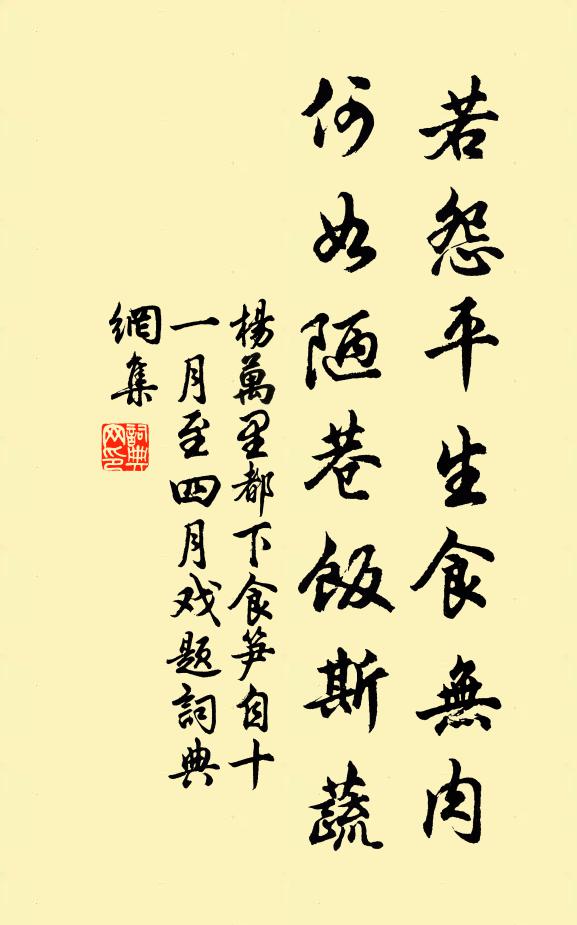 若怨平生食無肉
何如陋巷飯斯蔬
楊萬里都下食笋自十
一月至四月戏题詞典
網集
詞典
网印